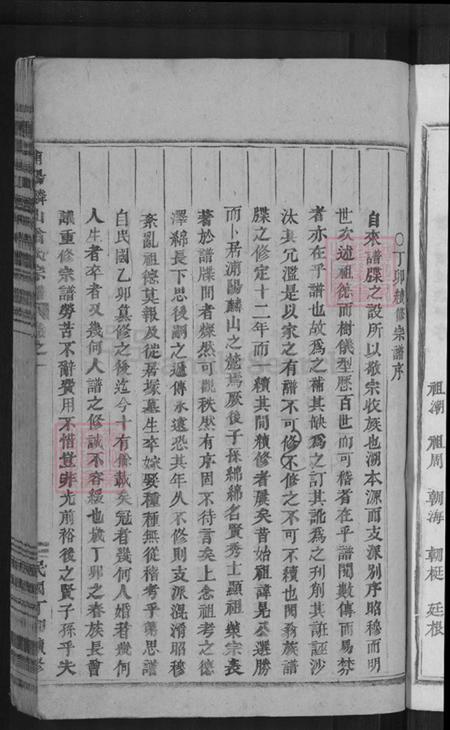 ○丁卯續修宗譜序
自來譜牒之設所以敬宗收族也溯本源而支派別序昭穆而明
世次述祖德而樹儀型歷百世而可稽者在乎譜閱數傳而易棼
者亦在乎譜也故爲之補其缺爲之訂其訛爲之刋削其誑誣沙
汰其冗濫是以家之有譜不可不修修之不可不續也閱翁族譜
牒之修定十二年而一續其間積修者屢矣昔始祖諱晃公選勝
而卜居浦陽麟山之麓焉厥後子孫綿綿名賢秀士顯祖榮宗表
著於譜牒間者燦然可觀秩然有序固不待言矣上念祖考之德
澤綿長下思後嗣之遞傳永遠恐其年久不修則支派混淆昭穆
紊亂祖德莫報及從居塚墓生卒嫁娶種種無從稽考乎粵思譜
自民國乙卯纂修之後迄今十有餘載矣冠者幾何人婚者幾何
人生者卒者又幾何人譜之修誠不容緩也歲丁卯之春族長會
議重修宗譜勞苦不辭費用不惜豈非光前裕後之賢子孫乎夫
民國丁卯續修
祖潮 祖周 朝海 朝梃 廷根